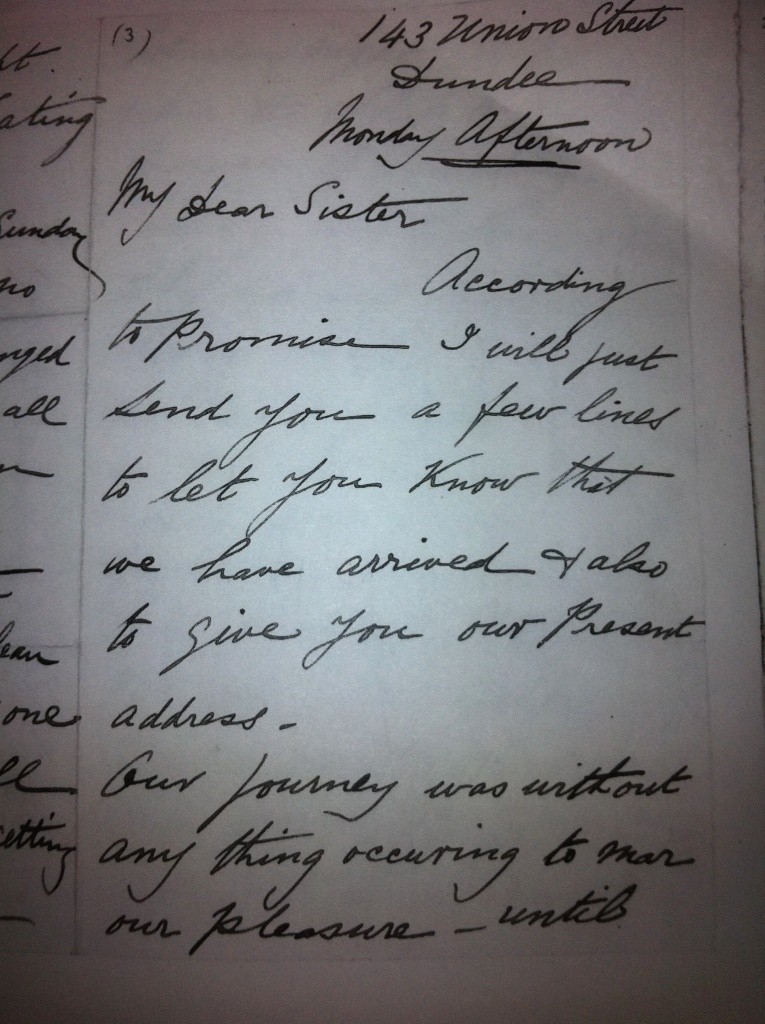 (3)
143 Union Street
Dundee
Monday Afternoon
My Dear Sister
According
to Promise I will just
send you a few lines
to let you Know that
we have arrived & also
to give you our Present
address -
Our journey was without
any thing occuring to mar
our pleasure - until
ating
Sunday
no
nged
all
lean
one
ll
etting